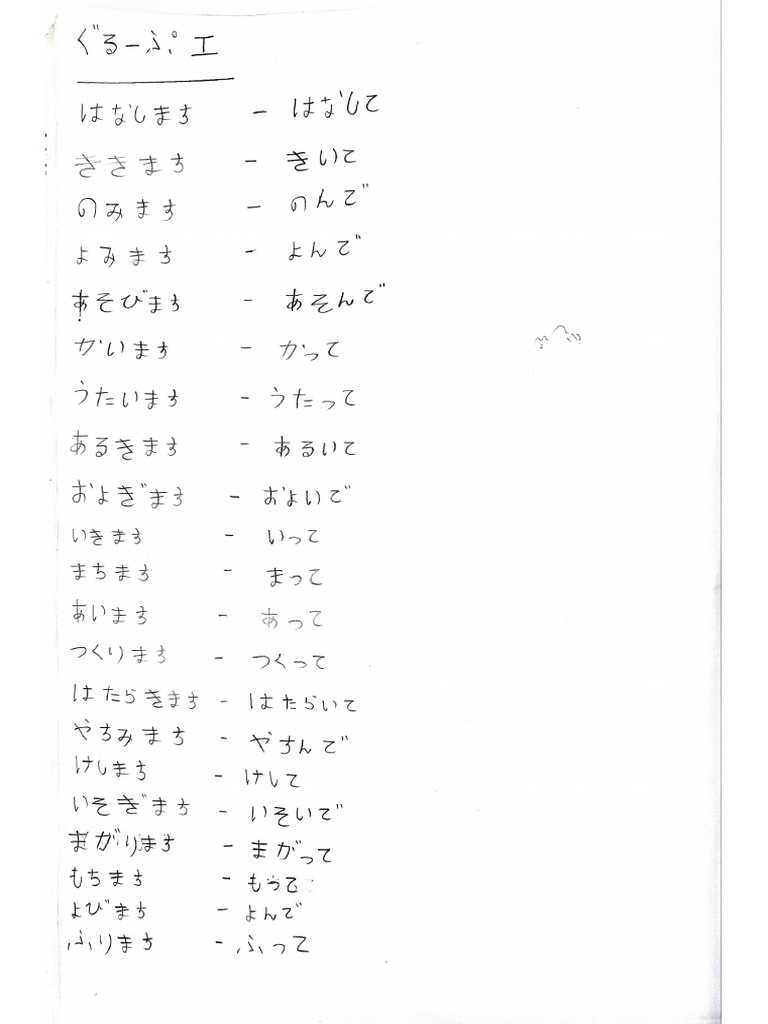 ぐるーぷ I
はなします - はなして
ききます - きいて
のみます - のんで
よみます - よんで
あそびます - あそんで
かいます - かって
うたいます - うたって
あるきます - あるいて
およぎます - およいで
いきます - いって
まちます - まって
あいます - あって
つくります - つくって
はたらきます - はたらいて
やすみます - やすんで
けします - けして
いそぎます - いそいで
まがります - まがって
もちます - もって
よびます - よんで
ふります - ふって